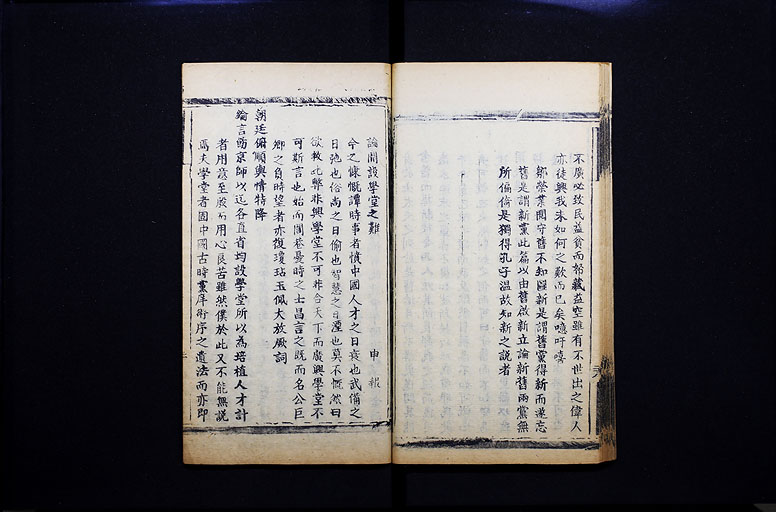 不廣必致民益貧而帑藏益空雖有不世出之偉人
亦徒興我未如何之歎而已矣噫吁嘻
鄒榮業閎守舊不知圖新是謂舊黨得新而遂忘
舊是謂新黨此篇以由舊啟新立論新舊兩黨無
所偏倚是獨得孔子溫故知新之說者
論開設學堂之難 申報
今之慷慨譚時事者憤中國人才之日衰也武備之
日弛也俗尚之日偷也智慧之日湮也莫不慨然曰
欲救此弊非興學堂不可非合天下而廣興學堂不
可斯言也始而閭巷憂時之士昌言之既而名公巨
卿之負時望者亦復瓊玷玉佩大放厥詞
朝廷俯順輿情特降
綸言飭京師以迄各直省均設學堂所以為培植人才計
者用意至殷而用心良苦雖然僕於此又不能無說
焉夫學堂者固中國古時黨庠術序之遺法而亦即